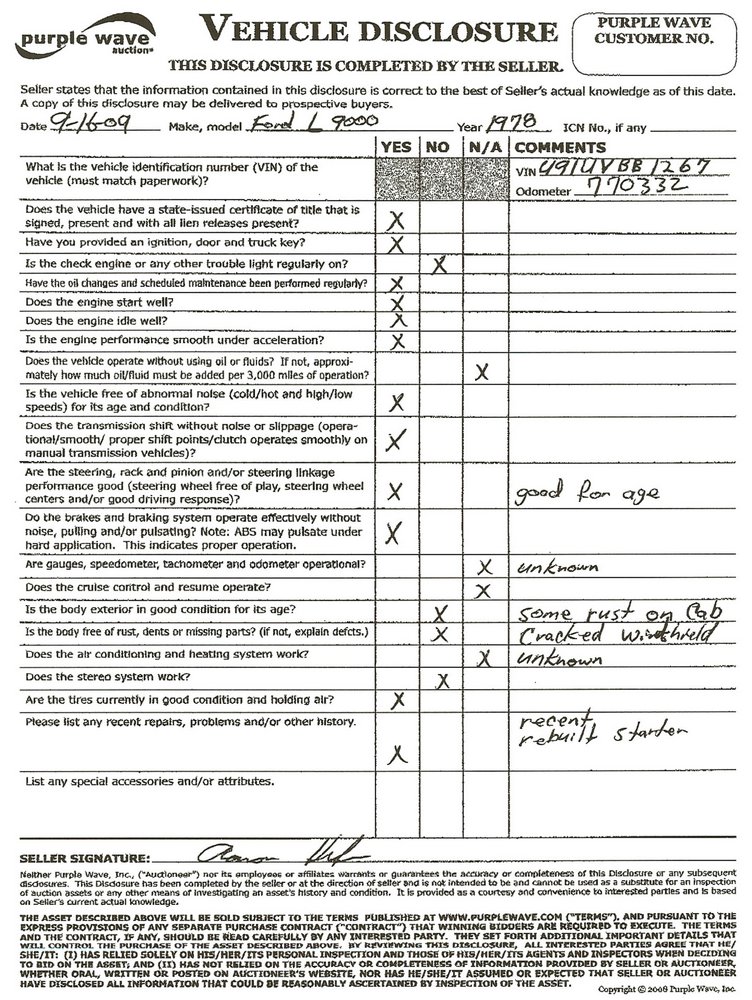 purple wave
auction®
VEHICLE DISCLOSURE
PURPLE WAVE
CUSTOMER NO.
THIS DISCLOSURE IS COMPLETED BY THE SELLER.
Seller states that the information contained in this disclosure is correct to the best of Seller's actual knowledge as of this date.
A copy of this disclosure may be delivered to prospective buyers.
Date 9-16-09 Make, model Ford L 9000 Year 1978 ICN No., if any
YES NO N/A COMMENTS
What is the vehicle identification number (VIN) of the VIN U91UVBB1267
vehicle (must match paperwork)? Odometer 770332
Does the vehicle have a state-issued certificate of title that is
signed, present and with all lien releases present? X
Have you provided an ignition, door and truck key? X
Is the check engine or any other trouble light regularly on? X
Have the oil changes and scheduled maintenance been performed regularly? X
Does the engine start well? X
Does the engine idle well? X
Is the engine performance smooth under acceleration? X
Does the vehicle operate without using oil or fluids? If not, approxi-
mately how much oil/fluid must be added per 3,000 miles of operation? X
Is the vehicle free of abnormal noise (cold/hot and high/low
speeds) for its age and condition? X
Does the transmission shift without noise or slippage (opera-
tional/smooth/ proper shift points/clutch operates smoothly on X
manual transmission vehicles)?
Are the steering, rack and pinion and/or steering linkage
performance good (steering wheel free of play, steering wheel X good for age
centers and/or good driving response)?
Do the brakes and braking system operate effectively without
noise, pulling and/or pulsating? Note: ABS may pulsate under X
hard application. This indicates proper operation.
Are gauges, speedometer, tachometer and odometer operational? X unknown
Does the cruise control and resume operate? X
Is the body exterior in good condition for its age? X some rust on Cab
Is the body free of rust, dents or missing parts? (if not, explain defcts.) X Cracked windshield
Does the air conditioning and heating system work? X unknown
Does the stereo system work? X
Are the tires currently in good condition and holding air? X
Please list any recent repairs, problems and/or other history. recent
rebuilt starter
X
List any special accessories and/or attributes.
SELLER SIGNATURE: Aaron
Neither Purple Wave, Inc., ("Auctioneer") nor its employees or affiliates warrants or guarantees the accuracy or completeness of this Disclosure or any subsequent
disclosures. This Disclosure has been completed by the seller or at the direction of seller and is not intended to be and cannot be used as a substitute for an inspection
of auction assets or any other means of investigating an asset's history and condition. It is provided as a courtesy and convenience to interested parties and is based
on Seller's current actual knowledge.
THE ASSET DESCRIBED ABOVE WILL BE SOLD SUBJECT TO THE TERMS PUBLISHED AT WWW.PURPLEWAVE.COM ("TERMS"). AND PURSUANT TO THE
EXPRESS PROVISIONS OF ANY SEPARATE PURCHASE CONTRACT ("CONTRACT") THAT WINNING BIDDERS ARE REQUIRED TO EXECUTE. THE TERMS
AND THE CONTRACT, IF ANY, SHOULD BE READ CAREFULLY BY ANY INTERESTED PARTY. THEY SET FORTH ADDITIONAL IMPORTANT DETAILS THAT
WILL CONTROL THE PURCHASE OF THE ASSET DESCRIBED ABOVE. BY REVIEWING THIS DISCLOSURE, ALL INTERESTED PARTIES AGREE THAT HE/
SHE/IT: (I) HAS RELIED SOLELY ON HIS/HER/ITS PERSONAL INSPECTION AND THOSE OF HIS/HER/ITS AGENTS AND INSPECTORS WHEN DECIDING
TO BID ON THE ASSET; AND (II) HAS NOT RELIED ON THE ACCURACY OR COMPLETENESS OF INFORMATION PROVIDED BY SELLER OR AUCTIONEER,
WHETHER ORAL, WRITTEN OR POSTED ON AUCTIONEER'S WEBSITE, NOR HAS HE/SHE/IT ASSUMED OR EXPECTED THAT SELLER OR AUCTIONEER
HAVE DISCLOSED ALL INFORMATION THAT COULD BE REASONABLY ASCERTAINED BY INSPECTION OF THE ASSET.
Copyright © 2008 Purple Wave, Inc.